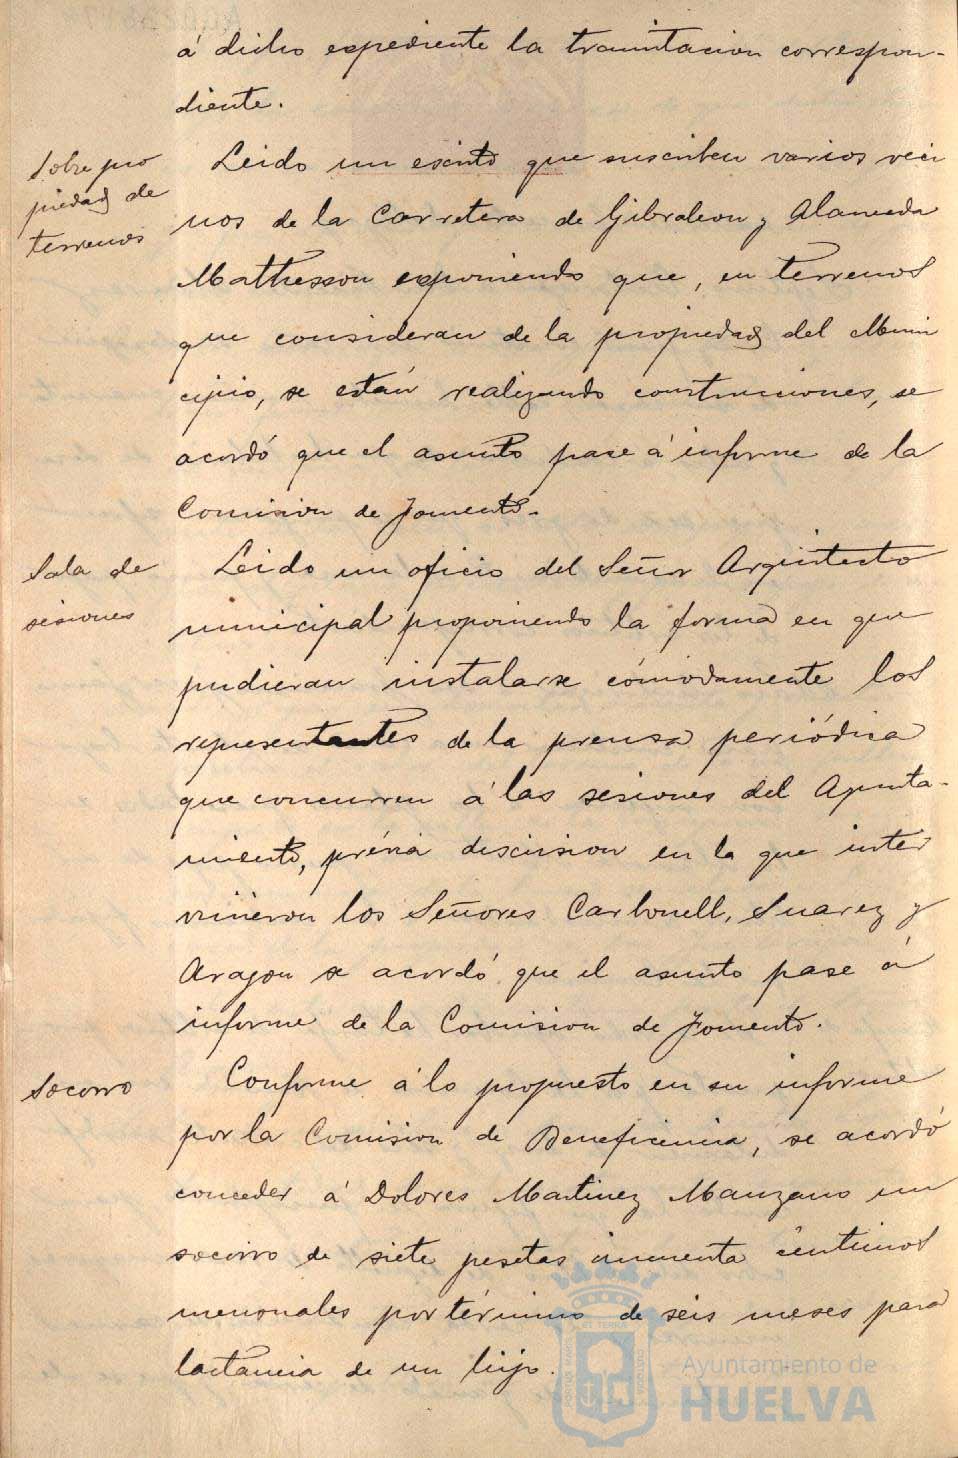 á dicho expediente la tramitacion correspon-
diente.
Sobre pro
piedad de
terrenos
Leido un escrito que suscriben varios veci
nos de la Carretera de Gibraleon y Alameda
Mathesson exponiendo que, en terrenos
que consideran de la propiedad del Muni
cipio, se están realizando construcciones, se
acordó que el asunto pase á informe de la
Comision de Fomento.
Sala de
sesiones
Leido un oficio del Señor Arquitecto
municipal proponiendo la forma en que
pudieran instalarse cómodamente los
representantes de la prensa periódica
que concurren á las sesiones del Ayunta-
miento, prévia discusion en la que inter
vinieron los Señores Carbonell, Suarez y
Aragon se acordó que el asunto pase á
informe de la Comision de Fomento.
Socorro
Conforme á lo propuesto en su informe
por la Comision de Beneficencia, se acordó
conceder á Dolores Martinez Manzano un
socorro de siete pesetas cincuenta céntimos
mensuales por término de seis meses para
lactancia de un hijo.
Ayuntamiento de
HUELVA